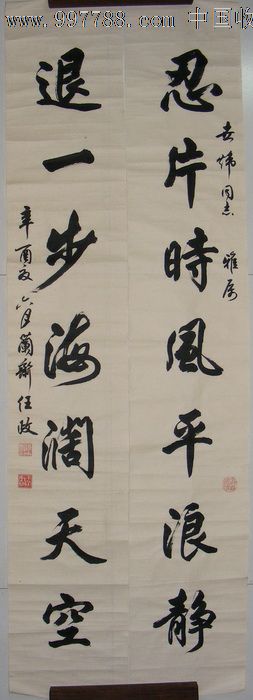 www.997788.com 中国收
忍片時風平浪静
同志 雅屬
退一步海濶天空
辛酉夏六月蘭齋任政